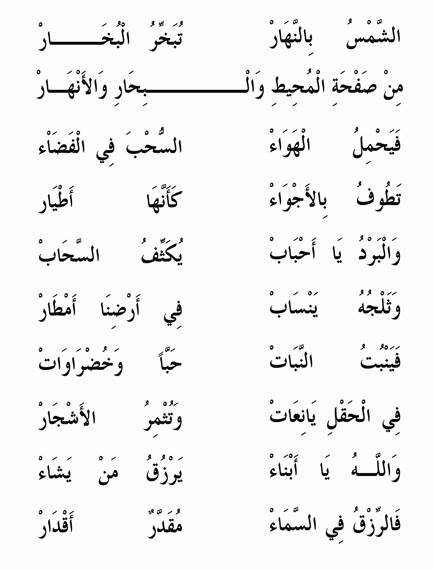 الشَّمْسُ بِالنَّهَارْ تُبَخِّرُ الْبُخَـــــــارْ
مِنْ صَفْحَةِ الْمُحِيطِ وَالْـــــــــــــبِحَارِ وَالأَنْهَـــارْ
فَيَحْمِلُ الْهَوَاءْ السُّحْبَ فِي الْفَضَاْء
تَطُوفُ بِالأَجْوَاءْ كَأَنَّهَا أَطْيَار
وَالْبَرْدُ يَا أَحْبَابْ يُكَثِّفُ السَّحَابْ
وَثَلْجُهُ يَنْسَابْ فِي أَرْضِنَا أَمْطَارْ
فَيَنْبُتُ النَّبَاتْ حَبَّاً وَخُضْرَاوَاتْ
فِي الْحَقْلِ يَانِعَاتْ وَتُثْمِرُ الأَشْجَارْ
وَاللَّـــهُ يَا أَبْنَاءْ يَرْزُقُ مَنْ يَشَاءْ
فَالرِّزْقُ فِي السَّمَاءْ مُقَدَّرٌ أَقْدَارْ